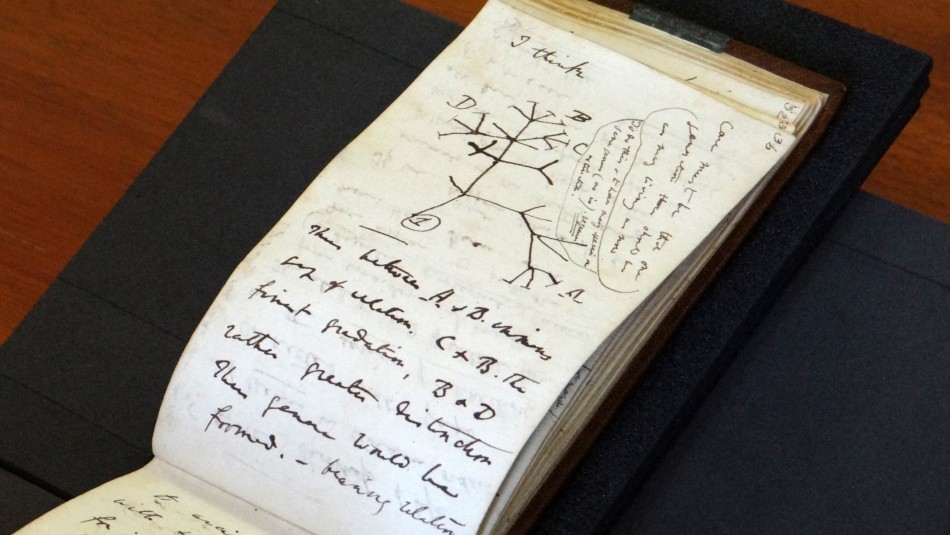 I think
D
B
C
A
1
Case must be that
one generation then should be
as many living as now
To do this & to have many species in
same genus (as is) requires
extinction
Thus between A & B. immens
gap of relation. C & B. the
finest gradation, B & D
rather greater distinction
Thus genera would be
formed. — bearing relation
with
for